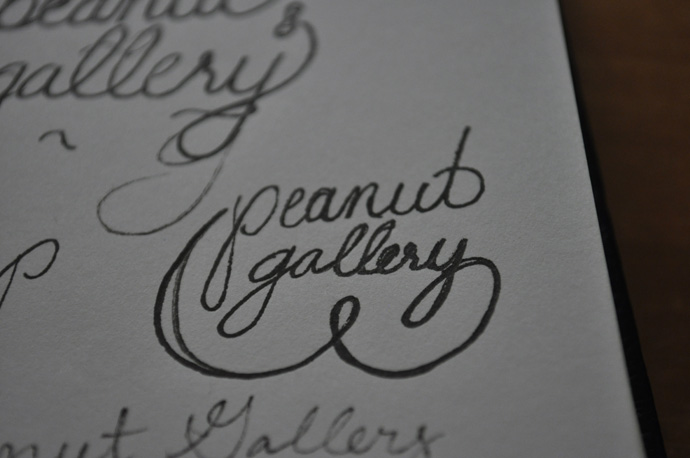 peanut
gallery
~
p
peanut
gallery
nut Gallery